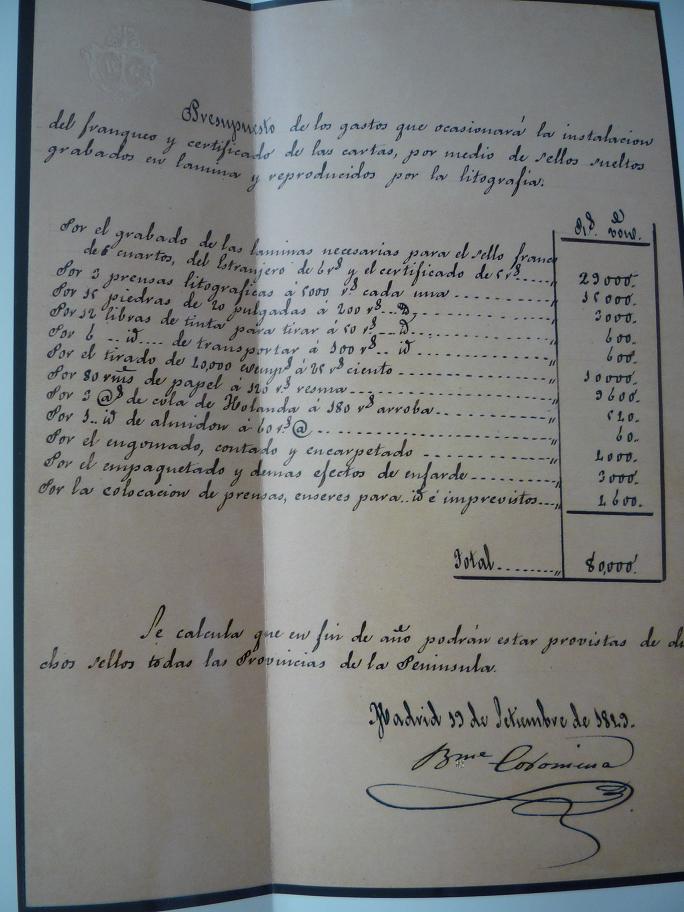 Presupuesto de los gastos que ocasionará la instalacion
del franqueo y certificado de las cartas, por medio de sellos sueltos
grabados en lamina y reproducidos por la litografia.
Rs. von.
Por el grabado de las laminas necesarias para el sello franco
de 6 cuartos, del Estranjero de 6 rs. y el certificado de 5 rs. ........ „ 29000.
Por 3 prensas litograficas á 5000 rs. cada una ........ „ 15000.
Por 15 piedras de 20 pulgadas á 200 rs. .. id. „ 3000.
Por 12 libras de tinta para tirar á 50 rs. ... id. ........ „ 600.
Por 6 .. id .... de transportar á 100 rs. .. id ........ „ 600.
Por el tirado de á 25 rs. ciento ........ „ 10000.
Por 80 rms. de papel á 120 rs. resma ........ „ 9600.
Por 3 @s. de cola de Holanda á 180 rs. arroba ........ „ 540.
Por 1 .. id de almidon á 60 rs. @ ........ „ 60.
Por el engomado, contado y encarpetado ........ „
Por el empaquetado y demas efectos de enfarde ........ „ 3000.
Por la colocacion de prensas, enseres para .. id é imprevistos .... „
Total ........ „ 80,000.
Se calcula que en fin de año podrán estar provistas de di
chos sellos todas las Provincias de la Peninsula.
Madrid 13 de Setiembre de
Bme Coromina